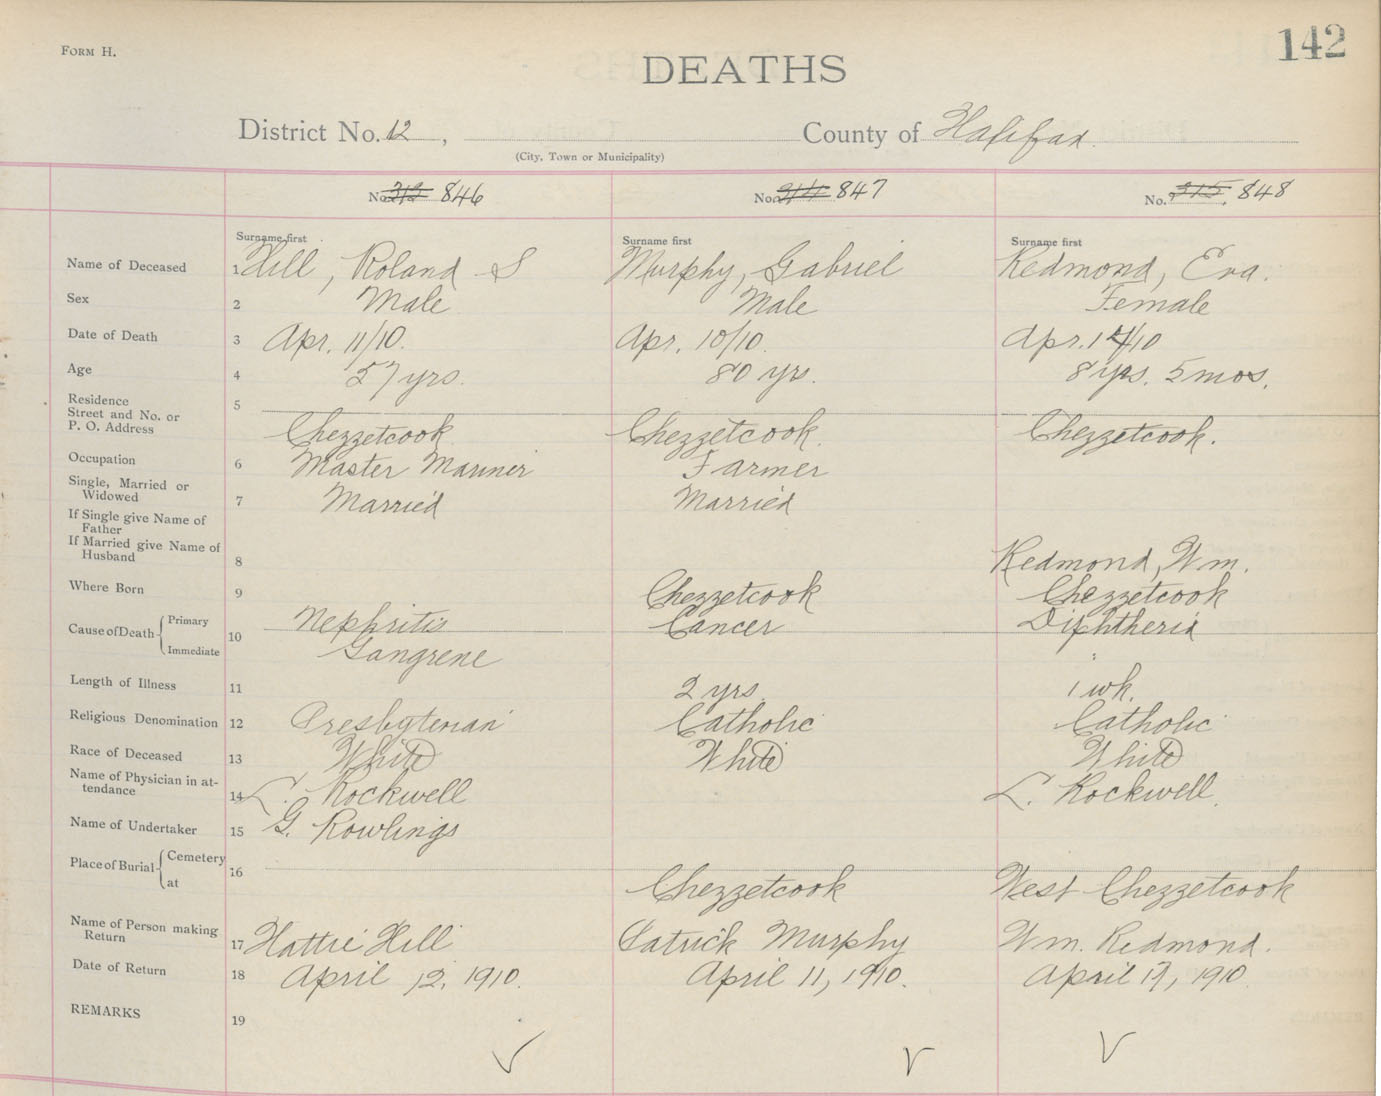 FORM H.
142
DEATHS
District No. 12, County of Halifax
(City, Town or Municipality)
No. 313 846 No. 314 847 No. 315 848
Surname first Surname first Surname first
Name of Deceased 1 Hill, Roland S Murphy, Gabriel Redmond, Eva.
Sex 2 Male Male Female
Date of Death 3 Apr. 11/10. Apr. 10/10. Apr. 14/10
Age 4 57 yrs. 80 yrs. 8 yrs. 5 mos.
Residence 5
Street and No. or
P. O. Address Chezzetcook Chezzetcook. Chezzetcook.
Occupation 6 Master Mariner Farmer
Single, Married or
Widowed 7 Married Married
If Single give Name of
Father
If Married give Name of
Husband 8 Redmond, Wm.
Where Born 9 Chezzetcook Chezzetcook
Cause of Death Primary 10 Nephritis Cancer Diphtheria
Immediate Gangrene
Length of Illness 11 2 yrs. 1 wk.
Religious Denomination 12 Presbyterian Catholic Catholic
Race of Deceased 13 White White White
Name of Physician in at-
tendance 14 L. Rockwell L. Rockwell.
Name of Undertaker 15 G. Rowlings
Place of Burial Cemetery 16
at Chezzetcook West Chezzetcook
Name of Person making
Return 17 Hattie Hill Patrick Murphy Wm. Redmond.
Date of Return 18 April 12, 1910. April 11, 1910. April 17, 1910.
REMARKS 19